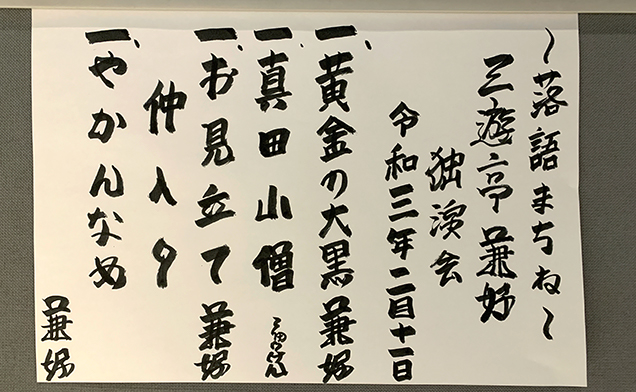 〜落語まちね〜
三遊亭兼好
独演会
令和三年二月十一日
一、黄金の大黒 兼好
一、真田小僧
一、お見立て 兼好
仲入り
一、やかんなめ
兼好